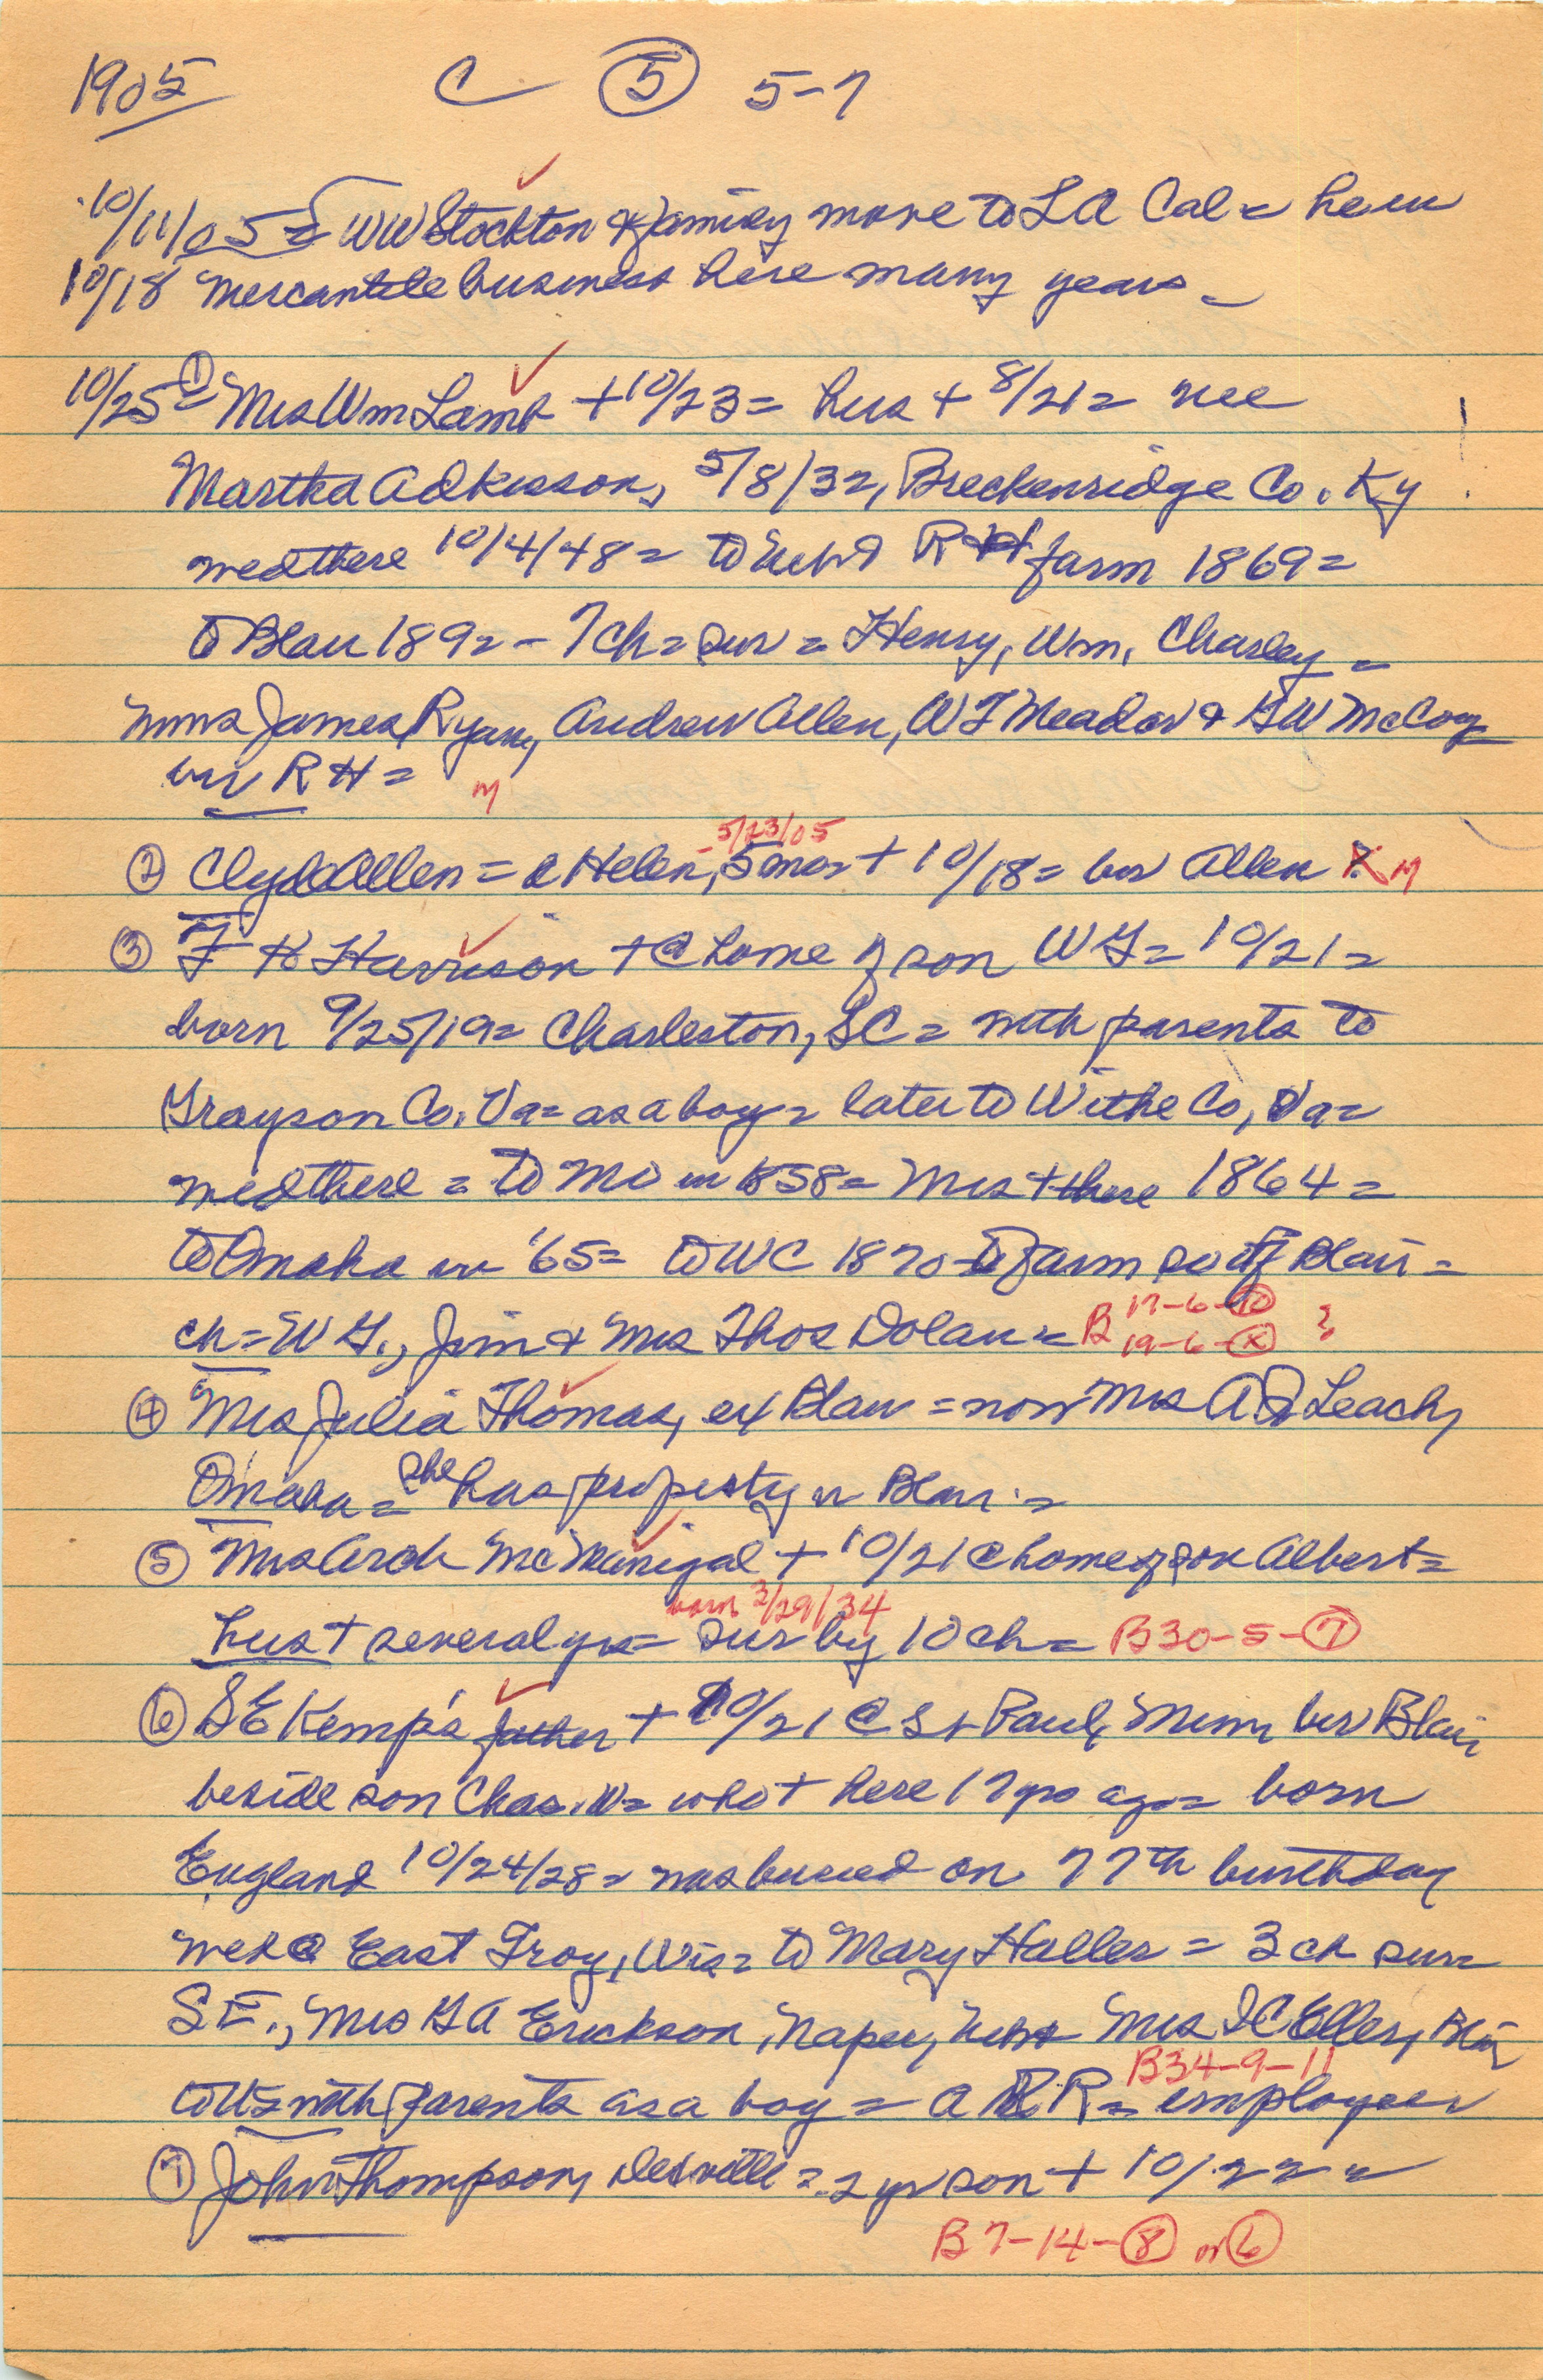 1905 C 5 5-7
10/11/05 = WW Stockton & family move to LA Cal = he in
10/18 mercantile business here many years =
10/25 = 1 Mrs Wm Lamb + 10/23 = hus + 8/21 = nee
Martha Adkisson, 5/8/32, Breckenridge Co. Ky
wed there 10/4/48 = to RH farm 1869 =
to Blair 1892 - 7 ch = sur = Henry, Wm, Charley =
mmes James Ryan, Andrew Allen, WF Meador & GW McCoy
bur RH =
M
5/23/05
2 Clyde Allen = c Helen, 5 mos + 10/18 = bur Allen M
3 F H Harrison + @ home of son WG = 10/21 =
born 9/25/19 = Charleston, SC = with parents to
Grayson Co. Va = as a boy = later to Withe Co, Va =
wed there = to Mo in 1858 = Mrs + there 1864 =
to Omaha in '65 = to WC 1870 to farm so of Blair =
ch = W G., Jim & Mrs Thos Dolan = B 17-6-10 ?
19-6-X
4 Mrs Julia Thomas, ex Blair = now Mrs A Leach,
Omaha = she has property in Blair =
5 Mrs Arch McManigal + 10/21 @ home of son Albert =
born 3/29/34
hus + several yrs = sur by 10 ch = B30-5-7
6 SE Kemp's father + 10/21 @ St Paul, Minn bur Blair
beside son Chas. W = who + here 17 yrs ago = born
England 10/24/28 = was buried on 77th birthday
wed @ East Troy, Wis = to Mary Haller = 3 ch sur =
SE., Mrs GA Erickson, Naper, Nebr Mrs IC Eller, Blair
B34-9-11
to US with parents as a boy = a RR = employee
7 John Thompson, DeSville = 2 yr son + 10/22 =
B 7-14-8 or 6